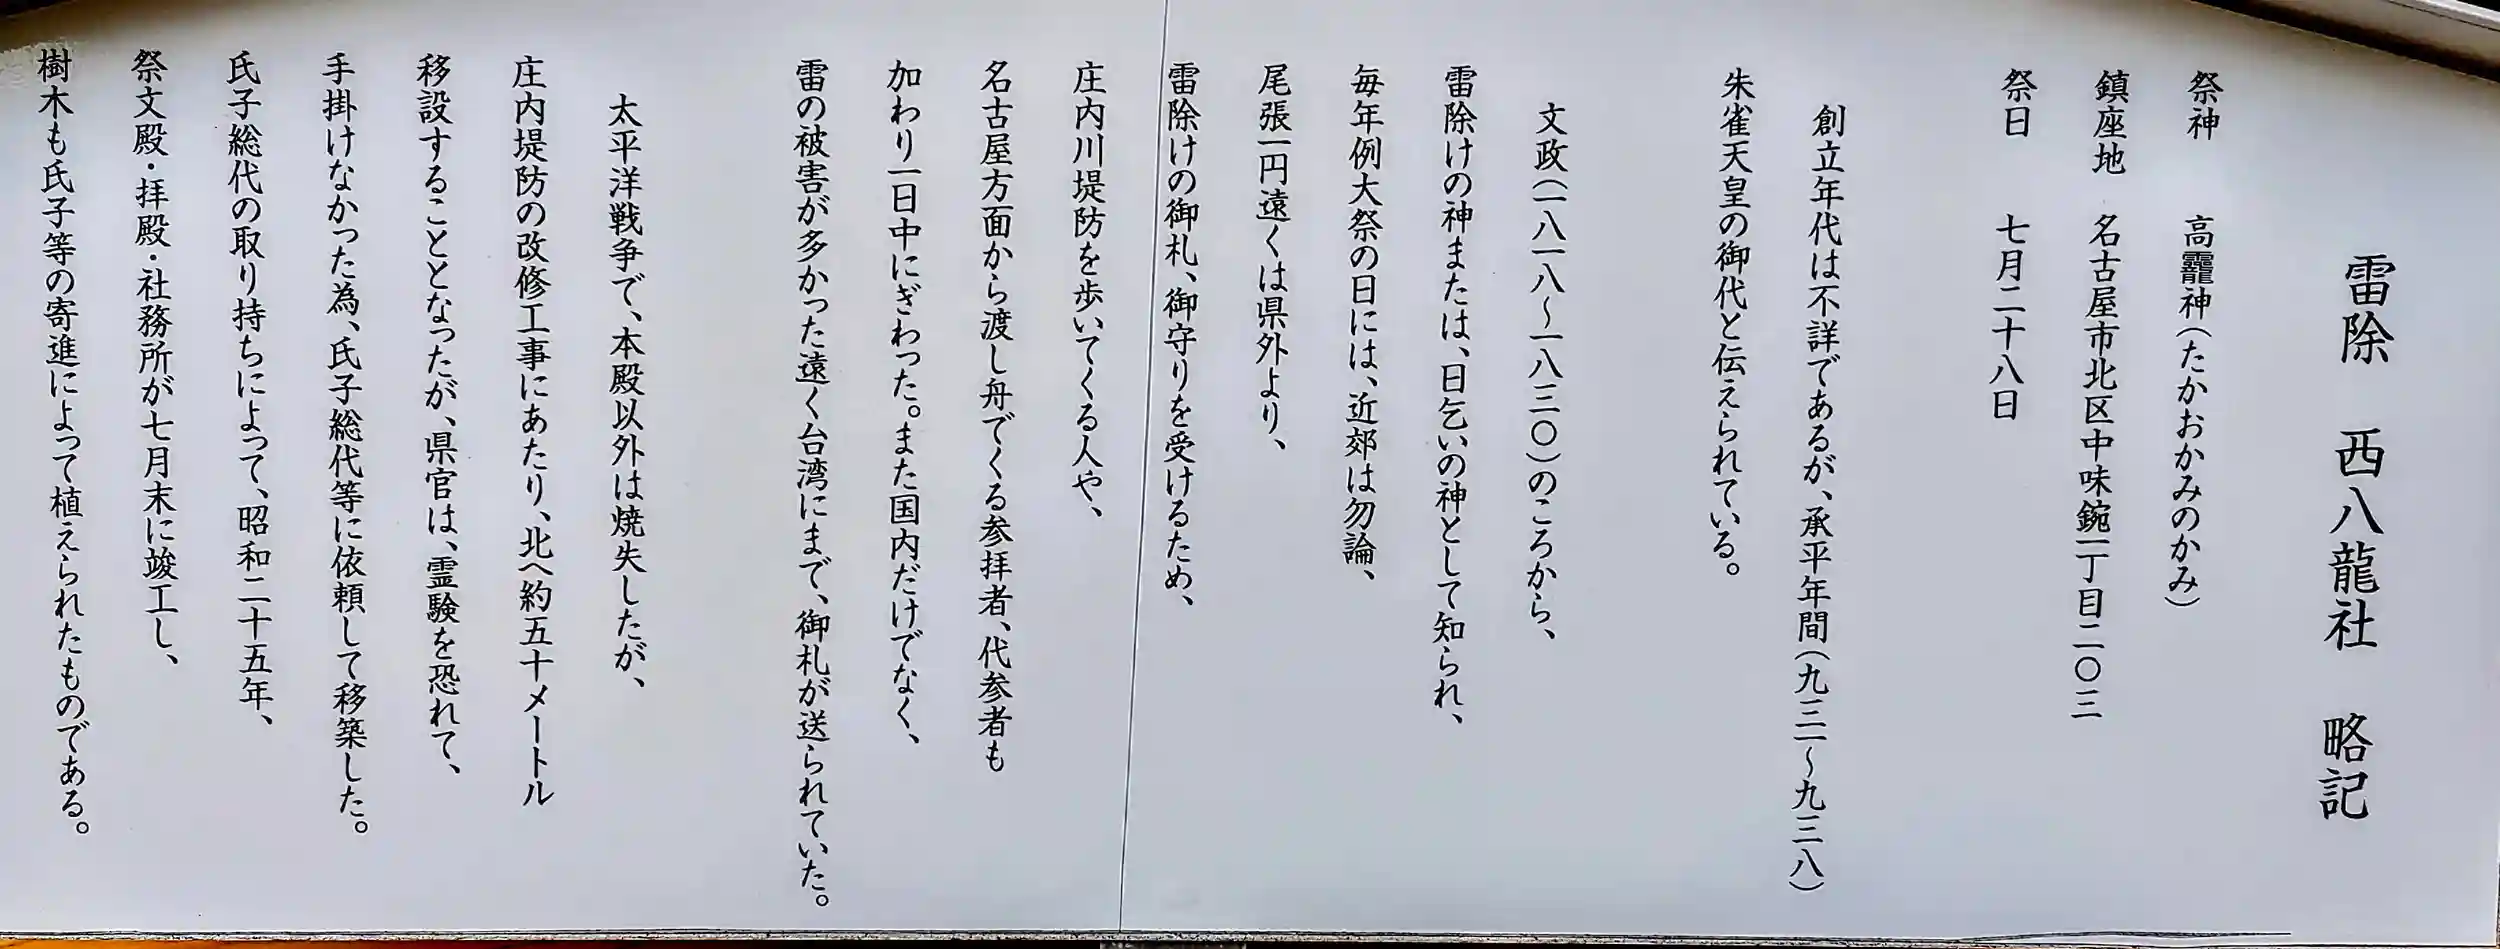 雷除　西八龍社　略記
祭神　高龗神（たかおかみのかみ）
鎮座地　名古屋市北区中味鋺一丁目二〇三
祭日　七月二十八日
創立年代は不詳であるが、承平年間（九三一～九三八）
朱雀天皇の御代と伝えられている。
文政（一八一八～一八三〇）のころから、
雷除けの神または、日乞いの神として知られ、
毎年例大祭の日には、近郊は勿論、
尾張一円遠くは県外より、
雷除けの御札、御守りを受けるため、
庄内川堤防を歩いてくる人や、
名古屋方面から渡し舟でくる参拝者、代参者も
加わり一日中にぎわった。また国内だけでなく、
雷の被害が多かった遠く台湾にまで、御札が送られていた。
太平洋戦争で、本殿以外は焼失したが、
庄内堤防の改修工事にあたり、北へ約五十メートル
移設することとなったが、県官は、霊験を恐れて、
手掛けなかった為、氏子総代等に依頼して移築した。
氏子総代の取り持ちによって、昭和二十五年、
祭文殿・拝殿・社務所が七月末に竣工し、
樹木も氏子等の寄進によって植えられたものである。